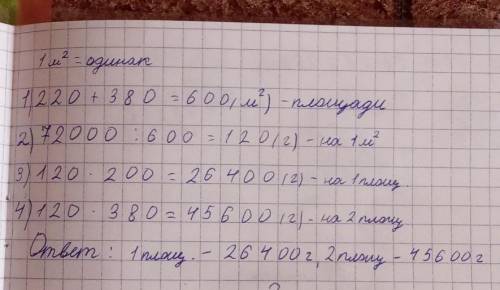 1 м² = одинак
1) 220 + 380 = 600 (м²) - площади
2) 72000 : 600 = 120 (г) - на 1 м²
3) 120 · 200 = 26400 (г) - на 1 площ.
4) 120 · 380 = 45600 (г) - на 2 площ
Ответ : 1 площ. - 26400 г, 2 площ - 45600 г